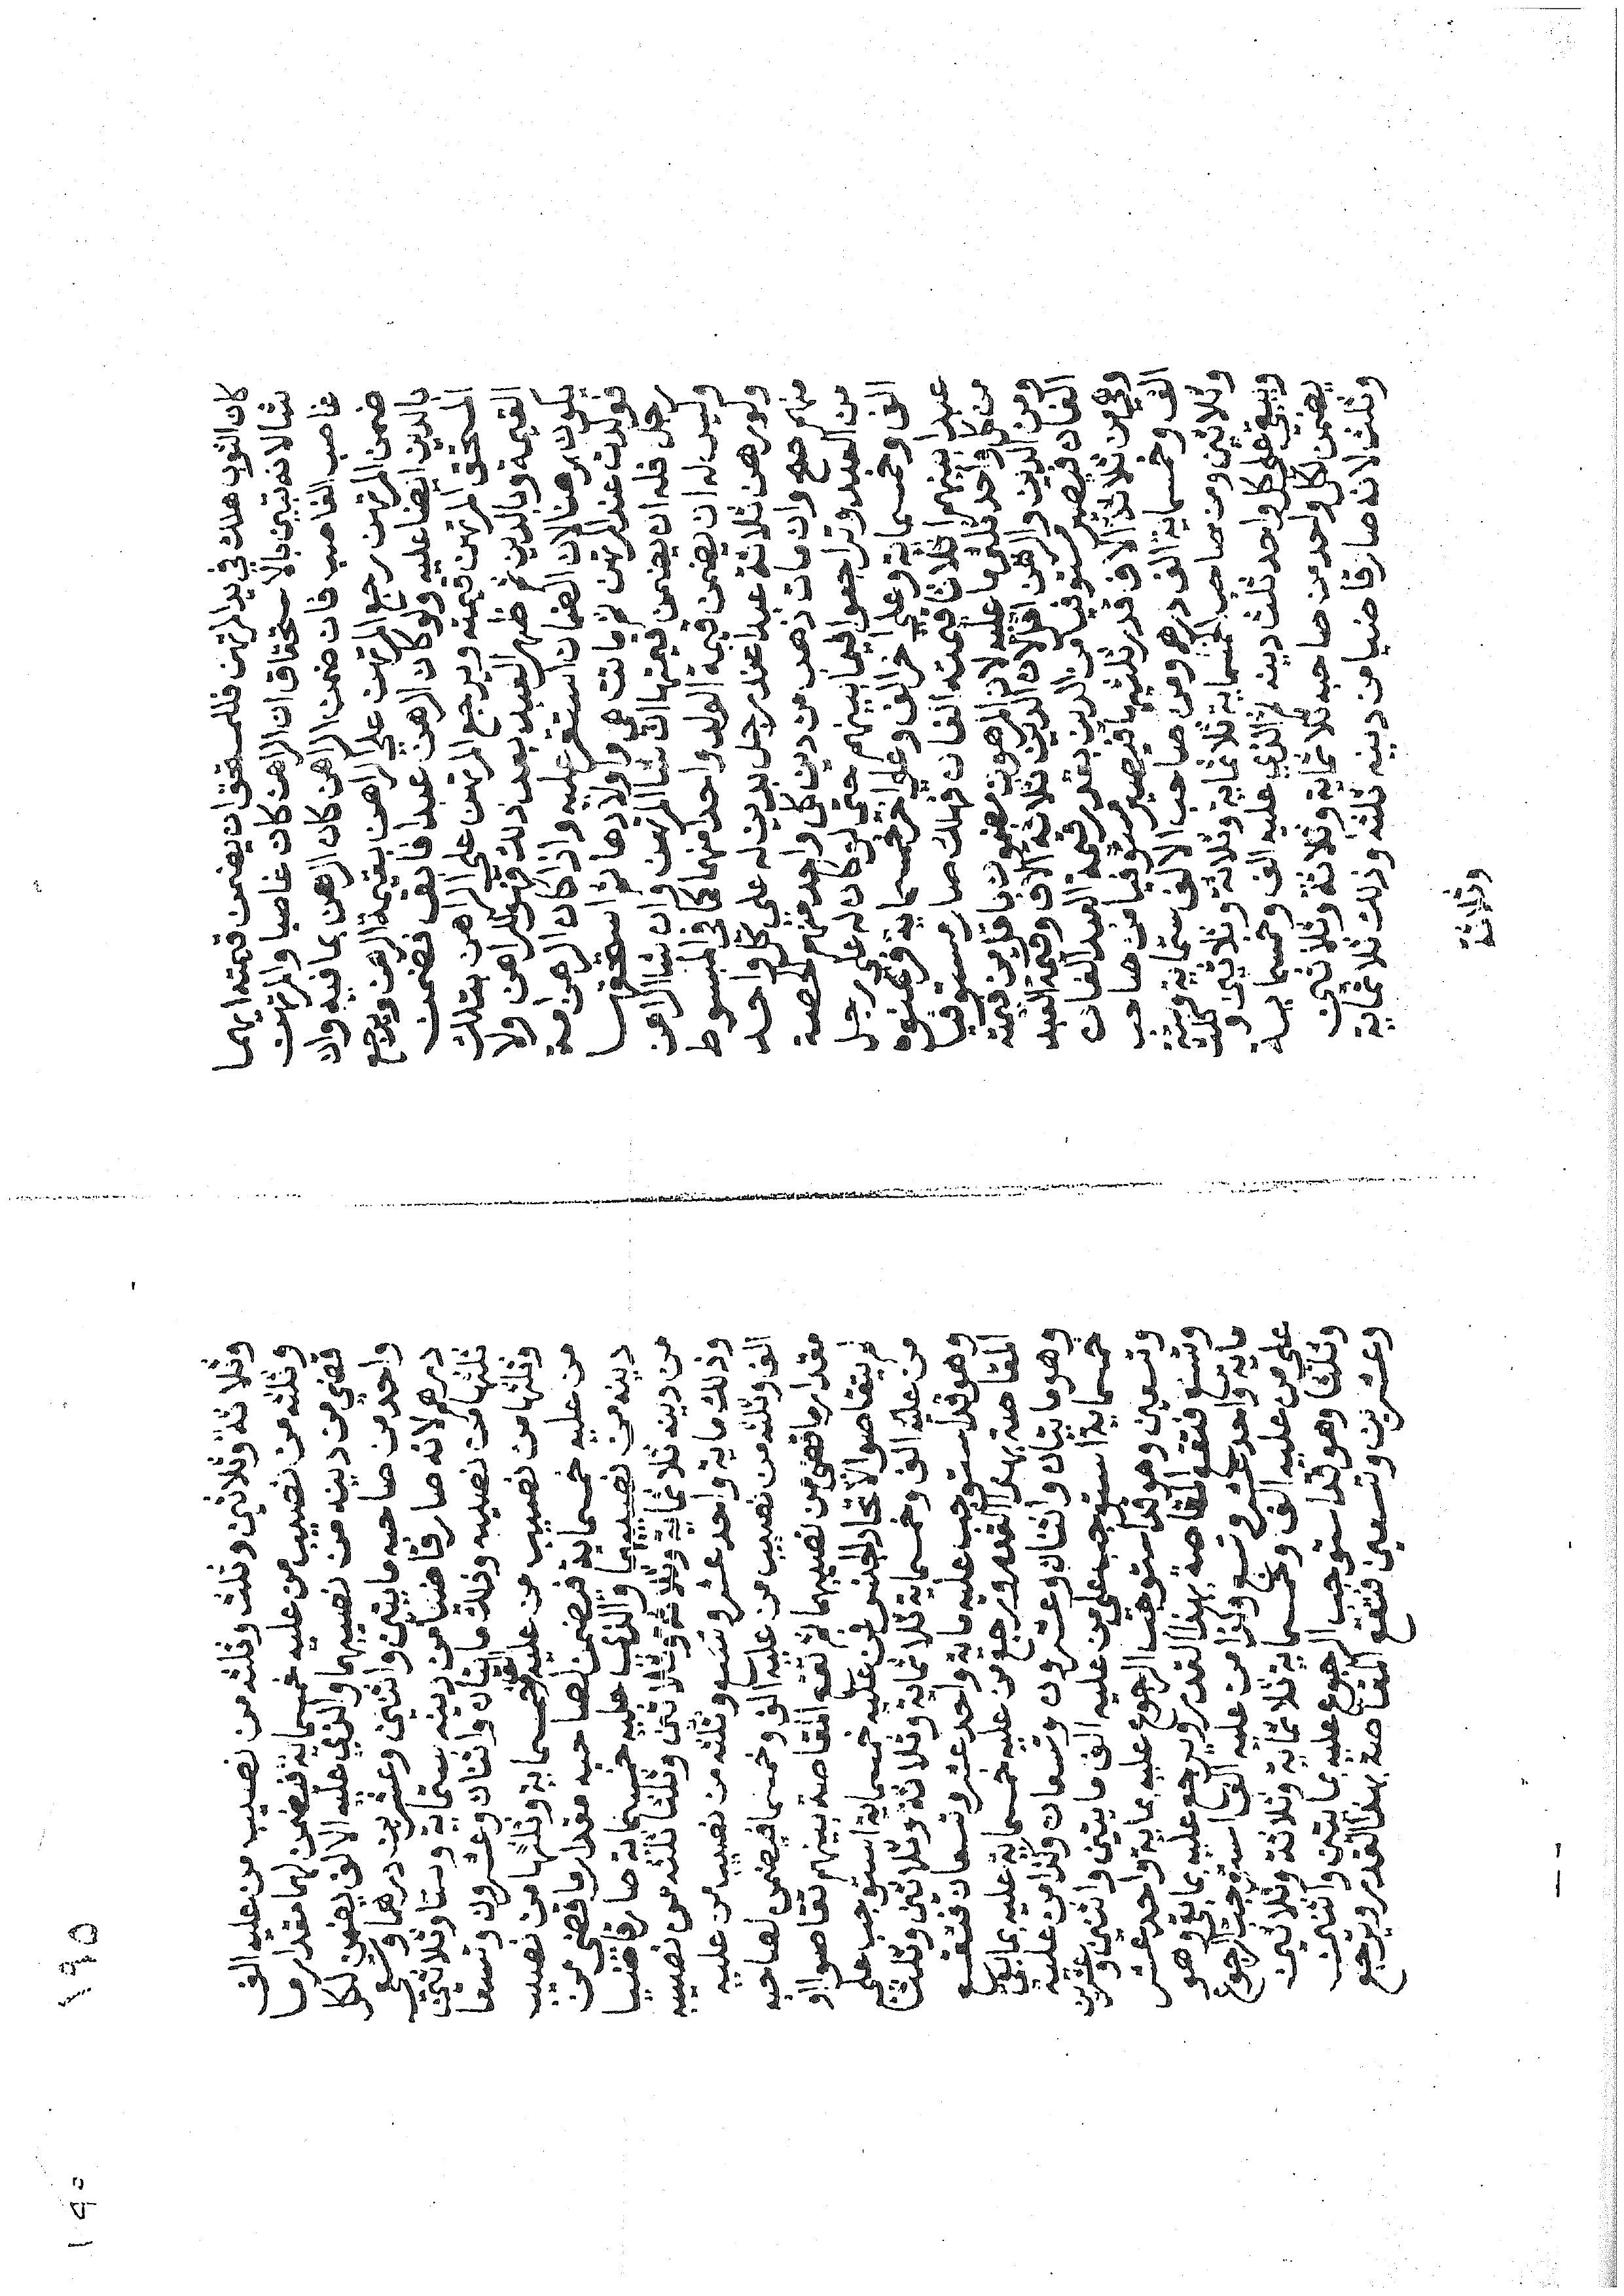 كان الثوب هلك في يد المرتهن فللمستحق ان يضمن قيمته ايهما
شا لانه تبين بالاستحقاق ان الراهن كان غاصبا والمرتهن
غاصب الغاصب فان ضمن الراهن كان الرهن بما فيه وان
ضمن المرتهن رجع المرتهن علي الراهن بقيمة الرهن ويرجع
بالدين ايضا عليه ولو كان الرهن عبدا فابق فضمن
المستحق المرتهن قيمته ويرجع المرتهن علي الراهن بتلك
القيمة وبالدين ثم ظهر العبد بعد ذلك فهو للراهن ولا
يكون رهنا لان الضمان استقر عليه واذا كان الرهن امة
فولدت عند المرتهن ثم ماتت هي واولادها ثم استحقها
رجل فله ان يضمن قيمتها ان شا المرتهن وان شا الراهن
وليس له ان يضمن قيمة الولد واحدا منهما كما في المبسوط
ولو رهن ثلاثة عبدا عند رجل بدين له علي كل واحد
منهم صح وان مات ذهب من دين كل واحد منهم حصة
من العبد وتراجعوا فيما بينهم حتي لو كان له علي رجل
الف وخمسماية وعلي اخر الف وعلي اخر خمسماية فرهنوه
عبدا بينهم اثلاثا قيمته الفان فهلك صار مستوفيا
من كل واحد ثلثي ما عليه لان المرهون مضمون باقل من قيمته
ومن الدين والرهن اقل لان الدين ثلاثة الاف وقيمة العبد
الفان فيصير مستوفيا من الدين بقدر قيمة العبد الفان
وهي من ثلاثة الاف قدر ثلثيها فيصير مستوفيا من صاحب
الف وخمسماية الف درهم ومن صاحب الالف ستماية وستة
وثلاثين ومن صاحب الخمسماية ثلاثماية وثلاثة وثلاثين و
ويبقي علي كل واحد ثلث دينه ثم الذي عليه الف وخمسماية
يضمن لكل واحد من صاحبه ثلاثماية وثلاثة وثلاثين
وثلث لانه صار قاضيا من دينه ثلثه وذلك ثلاثماية
وثلاثة
وثلاثة وثلاثين وثلث وثلثه من نصيب من عليه الف
وثلثه من نصيب من عليه خمسماية فيضمن لهما مقدار ما
قضي من دينه من نصيبهما والذي عليه الالف يضمن لكل
واحد من صاحبه مايتين واثنين وعشرين درهما وتسعي
درهم لانه صار قاضيا من دينه ستماية وستا وثلاثين
ثلثها من نصيبه وذلك مايتان واثنان وعشرون وتسعا
وثلثها من نصيب من عليه خمسماية وثلثها من نصيب
من عليه خمسماية فيضمن لصاحبه مقدار ما قضي من
دينه من نصيبهما والذي عليه خمسماية صار قاضيا
من دينه ثلاثماية وثلاثة وثلاثين وثلثا ثلثه من نصيبه
وذلك ماية واحد عشر وتسع وثلثه من نصيب من عليه
الف وثلثه من نصيب من عليه الف وخمسما فيضمن لصاحبه
مقدار ما قضي من نصيبهما ثم تقع المقاصة بينهم تقاصوا او
لم يتقاصوا لاتحاد الجنس فمن عليه خمسماية استوجب علي
من عليه الف وخمسماية ثلاثماية وثلاثة وثلاثين وثلثا
وهو قد استوجب عليه ماية واحد عشر وتسعا فتقع
المقاصة بهذا القدر ويرجع من عليه خمسماية عليه بما بقي
وهو مايتان واثنان وعشرون وتسعان وكذا من عليه
خمسماية استوجب علي من عليه الف مايتين واثنين وعشرين
وتسعين وهو قد استوجب الرجوع عليه بماية واحد عشر
وتسع فتقع المقاصة بهذا القدر ويرجع عليه بما بقي وهو
ماية واحد عشر وتسع وكذا من عليه الف استوجب الرجوع
علي من عليه الف وخمسماية ثلاثماية وثلاثة وثلاثين
وثلثا وهو قد استوجب الرجوع عليه بمايتين واثنين
وعشرين وتسعين فتقع المقاصة بهذا القدر ويرجع
١٩٥
١٩٥